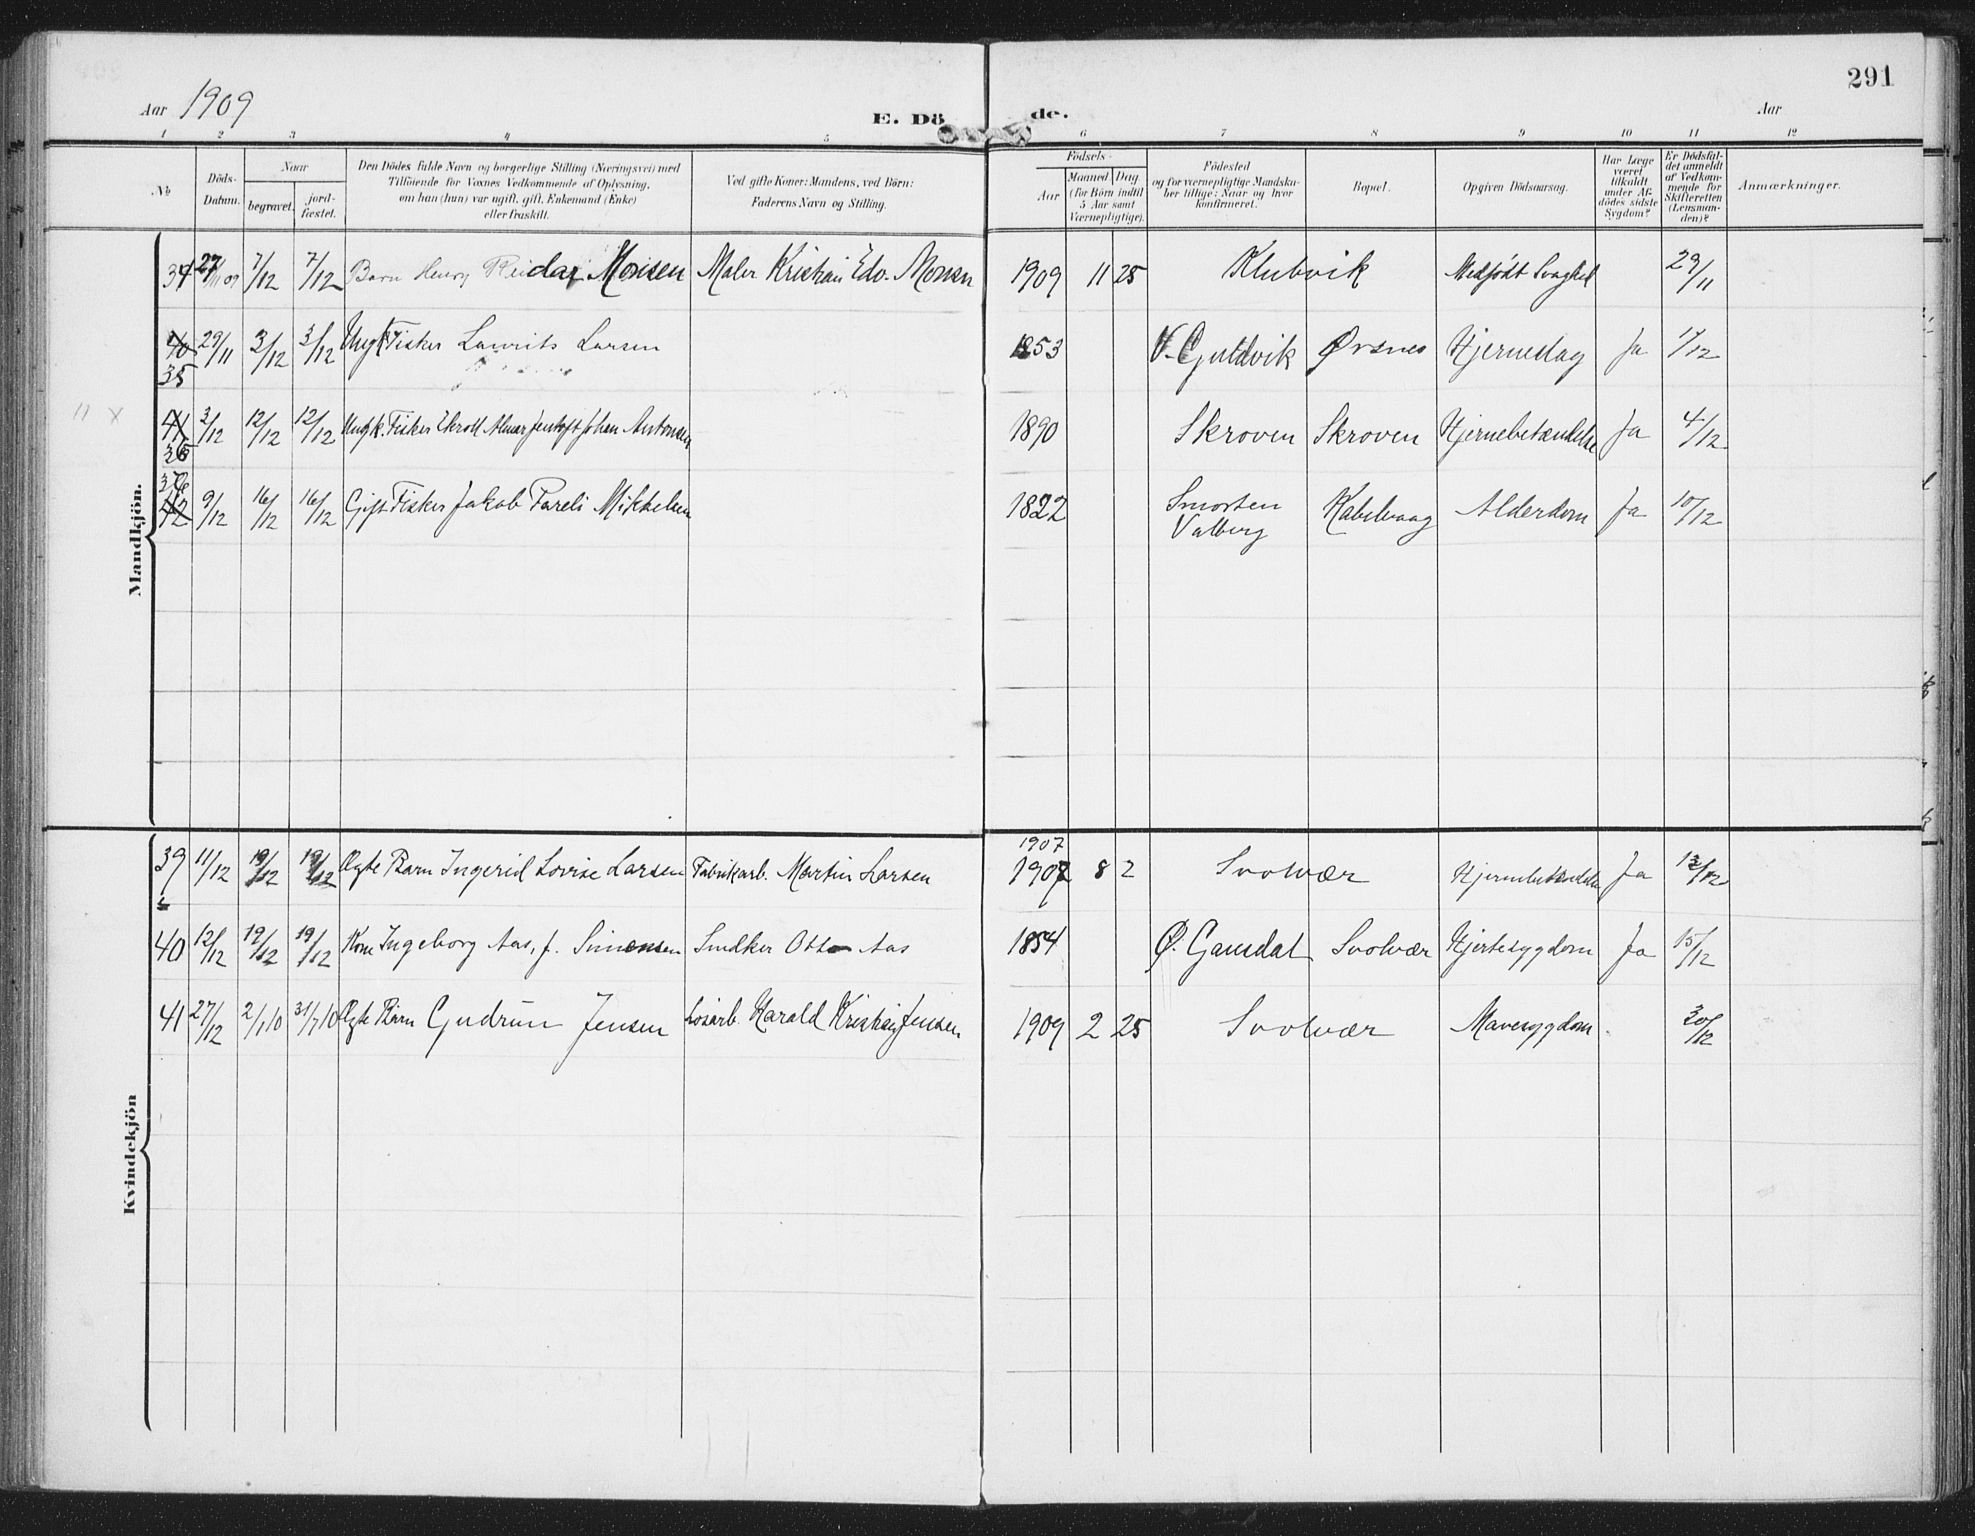 291
Aar 1909
E. Dö de.
Aar
1 2 3 4 5 6 7 8 9 10 11 12
No
Döds-Datum.
Naar
begravet.
jord-fæstet.
Den Dödes fulde Navn og borgerlige Stilling (Næringsvei) med
Tilföiende for Voxnes Vedkommende af Oplysning,
om han (hun) var ugift, gift, Enkemand (Enke)
eller fraskilt.
Ved gifte Koner: Mandens, ved Börn:
Faderens Navn og Stilling.
Födsels-
Aar
Maaned Dag
(for Börn indtil
5 Aar samt
Værnepligtige).
Födested
og for værnepligtige Mandska-
ber tillige: Naar og hvor
konfirmeret.
Bopæl.
Opgiven Dödsaarsag.
Har Læge
været
tilkaldt
under Af-
dödes sidste
Sygdom?
Er Dödsfal-
det anmeldt
af Vedkom-
mende for
Skifteretten
(Lensman-
den)?
Anmærkninger.
Mandkjön.
34 27/11 09 7/12 7/12 Barn Henry Reidar Monsen Maler Kristian Edv. Monsen 1909 11 25 Klubvik Medfödt Svaghed 29/11
40 35 29/11 3/12 3/12 Ungk. Fisker Laurits Larsen 1853 V. Guldvik Ørsnes Hjerneslag Ja 1/12
41 36 3/12 12/12 12/12 Ungk. Fisker Almar Jentoft Johan Antonsen 1890 Skroven Skroven Hjernebetændelse Ja 4/12
37 42 9/12 16/12 16/12 Gift Fisker Jakob Pareli Mikkelsen 1822 Smorten Valberg Kabelvaag Alderdom Ja 10/12
Kvindekjön
39 11/12 19/12 19/12 Ægte Barn Ingerid Lovise Larsen Fabrikarb. Martin Larsen 1907 1907 8 2 Svolvær Hjernebetændelse Ja 13/12
40 12/12 19/12 19/12 Kone Ingeborg Aas, f. Simensen Snedker Otto Aas 1854 Ø. Gausdal Svolvær Hjertesygdom Ja 15/12
41 27/12 2/1 10 31/7 10 Ægte Barn Gudrun Jensen Løsarb. Harald Kristian Jensen 1909 2 25 Svolvær Mavesygdom 30/12